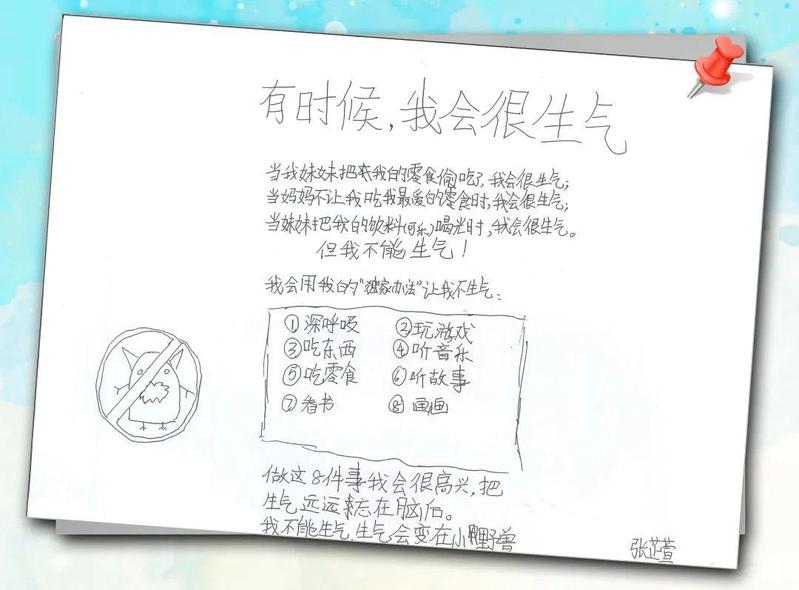 有时候,我会很生气
当我妹妹把我的零食偷吃了,我会很生气;
当妈妈不让我吃我最爱的零食时,我会很生气;
当妹妹把我的饮料(可乐)喝光时,我会很生气。
但我不能生气!
我会用我的"独家办法"让我不生气:
①深呼吸 ②玩游戏
③吃东西 ④听音乐
⑤吃零食 ⑥听故事
⑦看书 ⑧画画
做这8件事我会很高兴,把
生气远远忘在脑后。
我不能生气,生气会变在小野兽
张芷萱